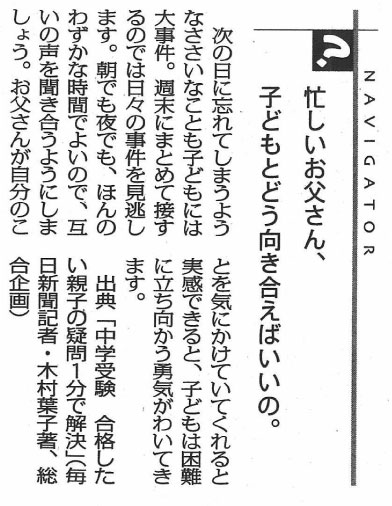 NAVIGATOR
?
忙しいお父さん、
子どもとどう向き合えばいいの。
次の日に忘れてしまうよう
なささいなことも子どもには
大事件。週末にまとめて接す
るのでは日々の事件を見逃し
ます。朝でも夜でも、ほんの
わずかな時間でよいので、互
いの声を聞き合うようにしま
しょう。お父さんが自分のこ
とを気にかけていてくれると
実感できると、子どもは困難
に立ち向かう勇気がわいてき
ます。
出典「中学受験　合格した
い親子の疑問1分で解決」(毎
日新聞記者・木村葉子著、総
合企画)